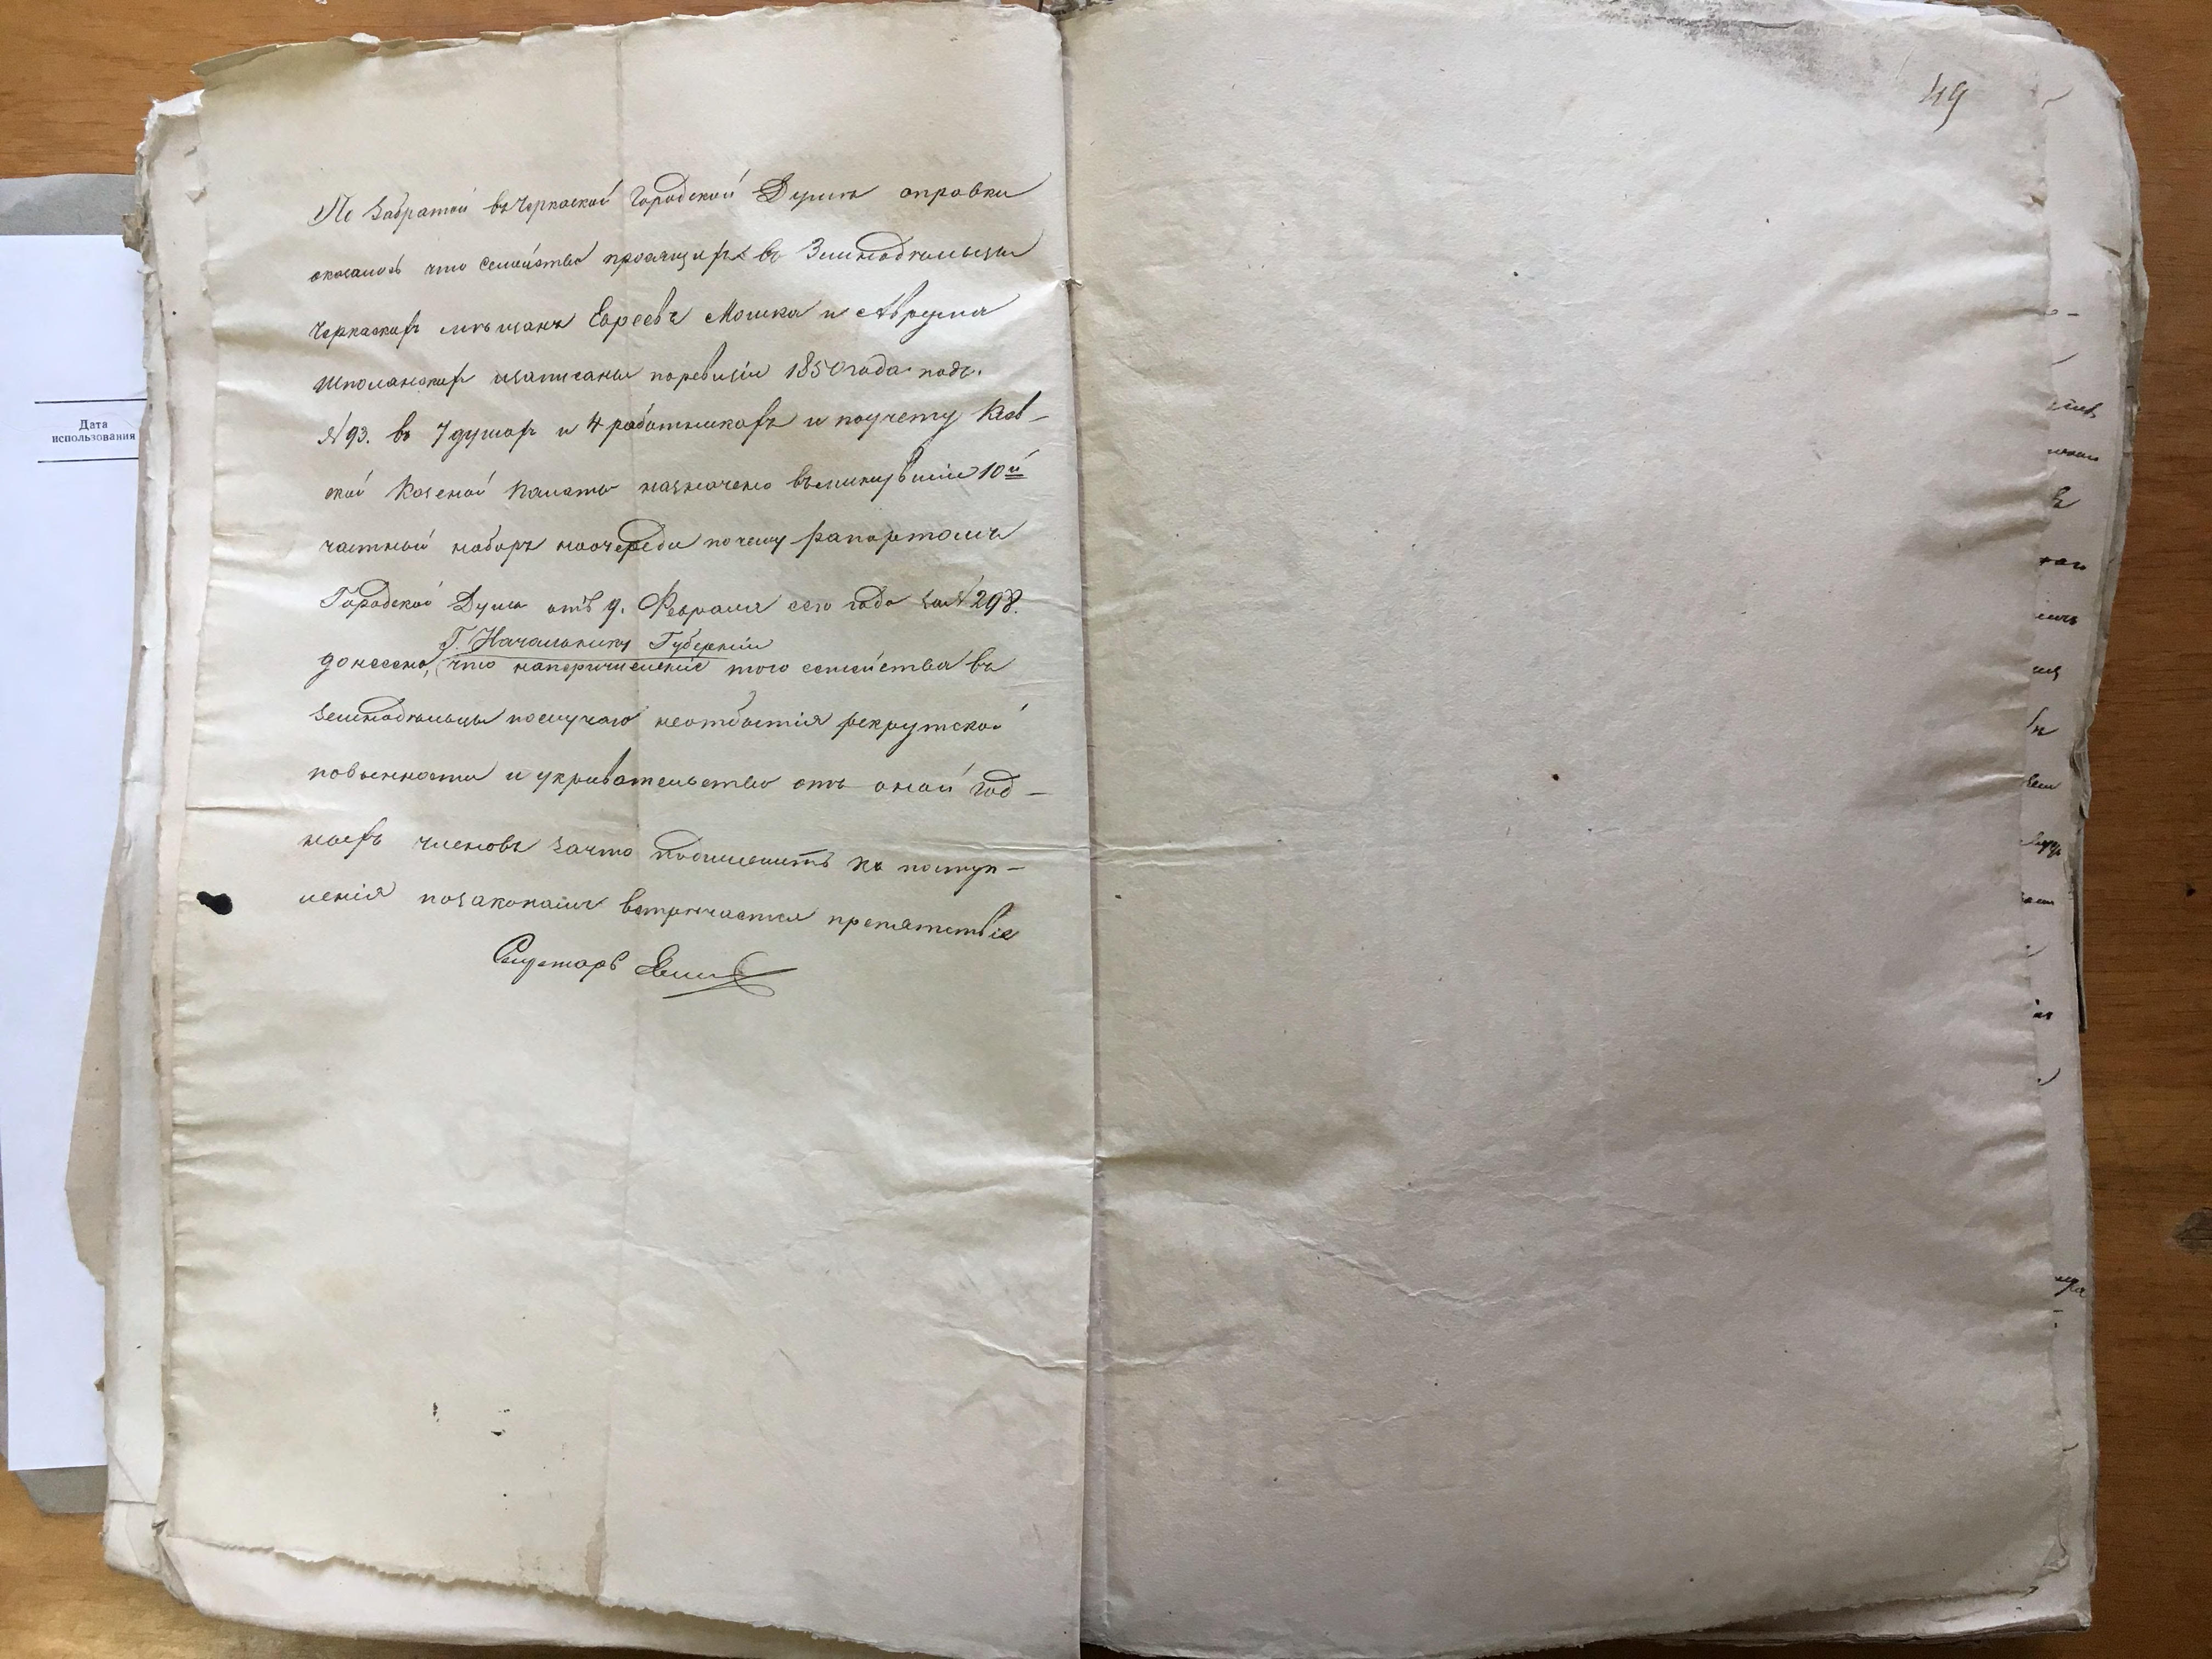 По забратой въ Черкаской Городской Думѣ справки
оказалось что семейство просящихъ въ Земледѣльцы
Черкаскихъ мѣщанъ Евреевъ Мошка и Аврума
Шполанских записаны поревизіи 1850 года подъ.
№ 93. въ 7 душахъ и 4 работникахъ и поучету Кіев-
ской Казеной Палаты назначено въ минувшій 10й
частный наборъ наочереди почему рапортомъ
Городской Думы отъ 9. Февраля сего года за № 298.
Г. Начальнику Губерніи
донесено, что наперечисленіе того семейства въ
земледѣльцы послучаю неотбытія рекрутской
повинности и укрывательство отъ оной год-
ныхъ членовъ зачто подлежитъ къ поступ-
ленія позаконамъ встрѣчается препятствіе
Секретарь
49
Дата
использования